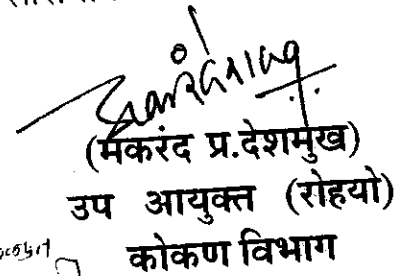 (मकरंद प्र.देशमुख)
उप आयुक्त (रोहयो)
कोकण विभाग